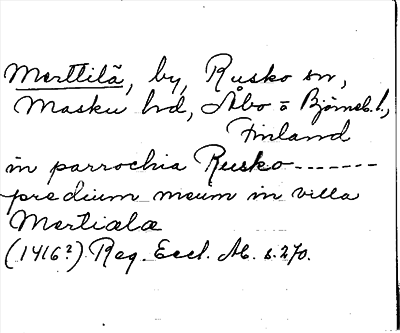 Merttilä, by, Rusko sn,
Masku hd, Åbo o Björneb. l.,
Finland
in parrochia Rusko-------
predium meum in villa
Mertiala
(1416?) Reg. Eccl. Ab. s. 270.